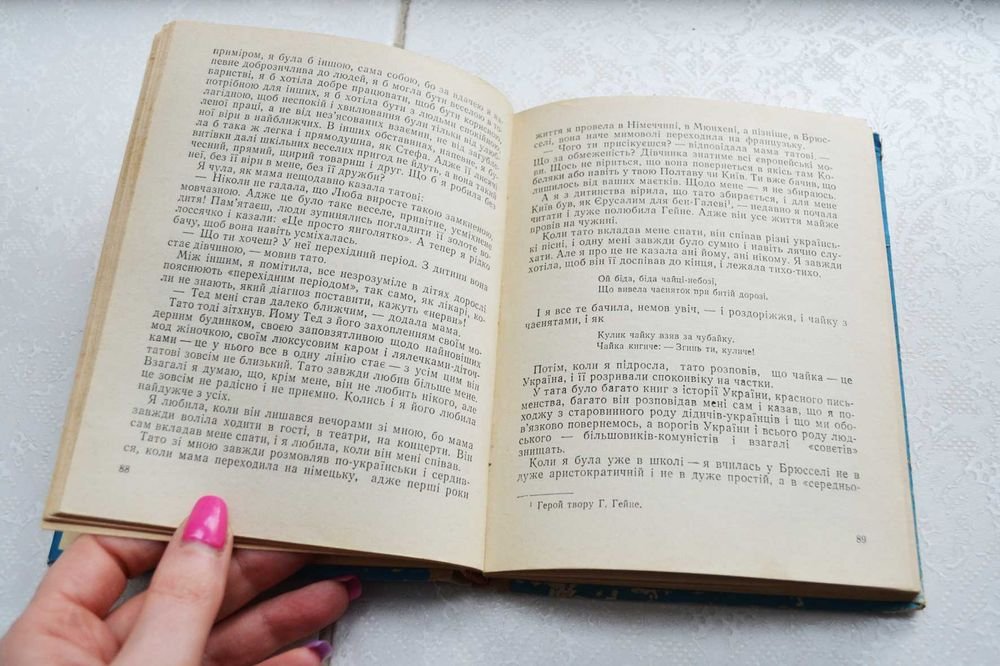 приміром, я була б іншою, сама собою, бо за вдачею я на-
певне доброзичлива до людей, я б могла бути веселою в то-
баристві, я б хотіла добре працювати, щоб бути корисною,
потрібною для інших, я б хотіла бути з людьми спокійною,
лагідною, щоб неспокій і хвилювання були тільки від улюб-
леної праці, а не від нез'ясованих взаємин, не від загубле-
ної віри в найближчих. В інших обставинах, напевне, я бу-
ла б така ж легка і прямодушна, як Стефа. Адже, її дівочі
витівки далі шкільних веселих пригод не йдуть, а вона такий
чесний, прямий, щирий товариш і друг. Що б я робила без
неї, без її віри в мене, без її дружби?
Я чула, як мама нещодавно казала татові:
— Ніколи не гадала, що Люба виросте такою замкненою,
мовчазною. Адже це було таке веселе, привітне, усміхнене
дитя! Пам'ятаєш, люди зупинялись погладити її золоте во-
лоссячко і казали: «Це просто янголятко». А тепер я рідко
бачу, щоб вона навіть усміхалась.
— Що ти хочеш? У неї перехідний період. З дитини вона
стає дівчиною, — мовив тато.
Між іншим, я помітила, все незрозуміле в дітях дорослі
пояснюють «перехідним періодом», так само, як лікарі, ко-
ли не знають, який діагноз поставити, кажуть «нерви»!
— Тед мені став далеко ближчим, — додала мама.
Тато тоді зітхнув. Йому Тед з його захопленням своїм мо-
дерним будинком, своєю заповзятливістю щодо найновіших
мод жіночкою, своїм люксусовим каром і лялечками-діточ-
ками — це у нього все в одну лінію стає — з усім цим він
татові зовсім не близький. Тато завжди любив більше мене.
Взагалі я думаю, що, крім мене, він не любить нікого, але
це зовсім не радісно і не приємно. Колись і я його любила
найдужче з усіх.
Я любила, коли він лишався вечорами зі мною, бо мама
завжди воліла ходити в гості, в театри, на концерти. Він
сам вкладав мене спати, і я любила, коли він мені співав.
Тато зі мною завжди розмовляв по-українськи і сердив-
ся, коли мама переходила на німецьку, адже перші роки
88
життя я провела в Німеччині, в Мюнхені, а пізніше, в Брюс-
селі, вона наче мимоволі переходила на французьку.
— Чого ти присікуєшся? — відповідала мама татові. —
Що за обмеженість? Дівчинка знатиме всі європейські мо-
ви. Щось не віриться, що вона повернеться в якісь там Ко-
беляки або навіть у твою Полтаву чи Київ. Ти вже бачив, що
лишилось від ваших маєтків. Щодо мене — я не збираюсь.
А я з дитинства вірила, що тато збирається, і для мене
Київ був, як Єрусалим для бен-Галеві¹, — недавно я почала
читати і дуже полюбила Гейне. Адже він усе життя майже
провів на чужині.
Коли тато вкладав мене спати, він співав різні українсь-
кі пісні, і одну мені завжди було сумно і навіть лячно слу-
хати. Але я про це не казала ані йому, ані нікому. Я завжди
хотіла, щоб він її доспівав до кінця, і лежала тихо-тихо.
Ой біда, біда чайці-небозі,
Що вивела чаєняток при битій дорозі.
І я все те бачила, немов увіч, — і роздоріжжя, і чайку з
чаєнятами, і як
Кулик чайку взяв за чубайку.
Чайка кигиче: — Згинь ти, куличе!
Потім, коли я підросла, тато розповів, що чайка — це
Україна, і її розривали споконвіку на частки.
У тата було багато книг з історії України, красного пись-
менства, багато він розповідав мені сам і казав, що я по-
ходжу з старовинного роду дідичів-українців і що ми обо-
в'язково повернемось, а ворогів України і всього роду люд-
ського — більшовиків-комуністів і взагалі «совєтів»
знищать.
Коли я була уже в школі — я вчилась у Брюсселі не в
дуже аристократичній і не в дуже простій, а в «середньо-
¹ Герой твору Г. Гейне.
89